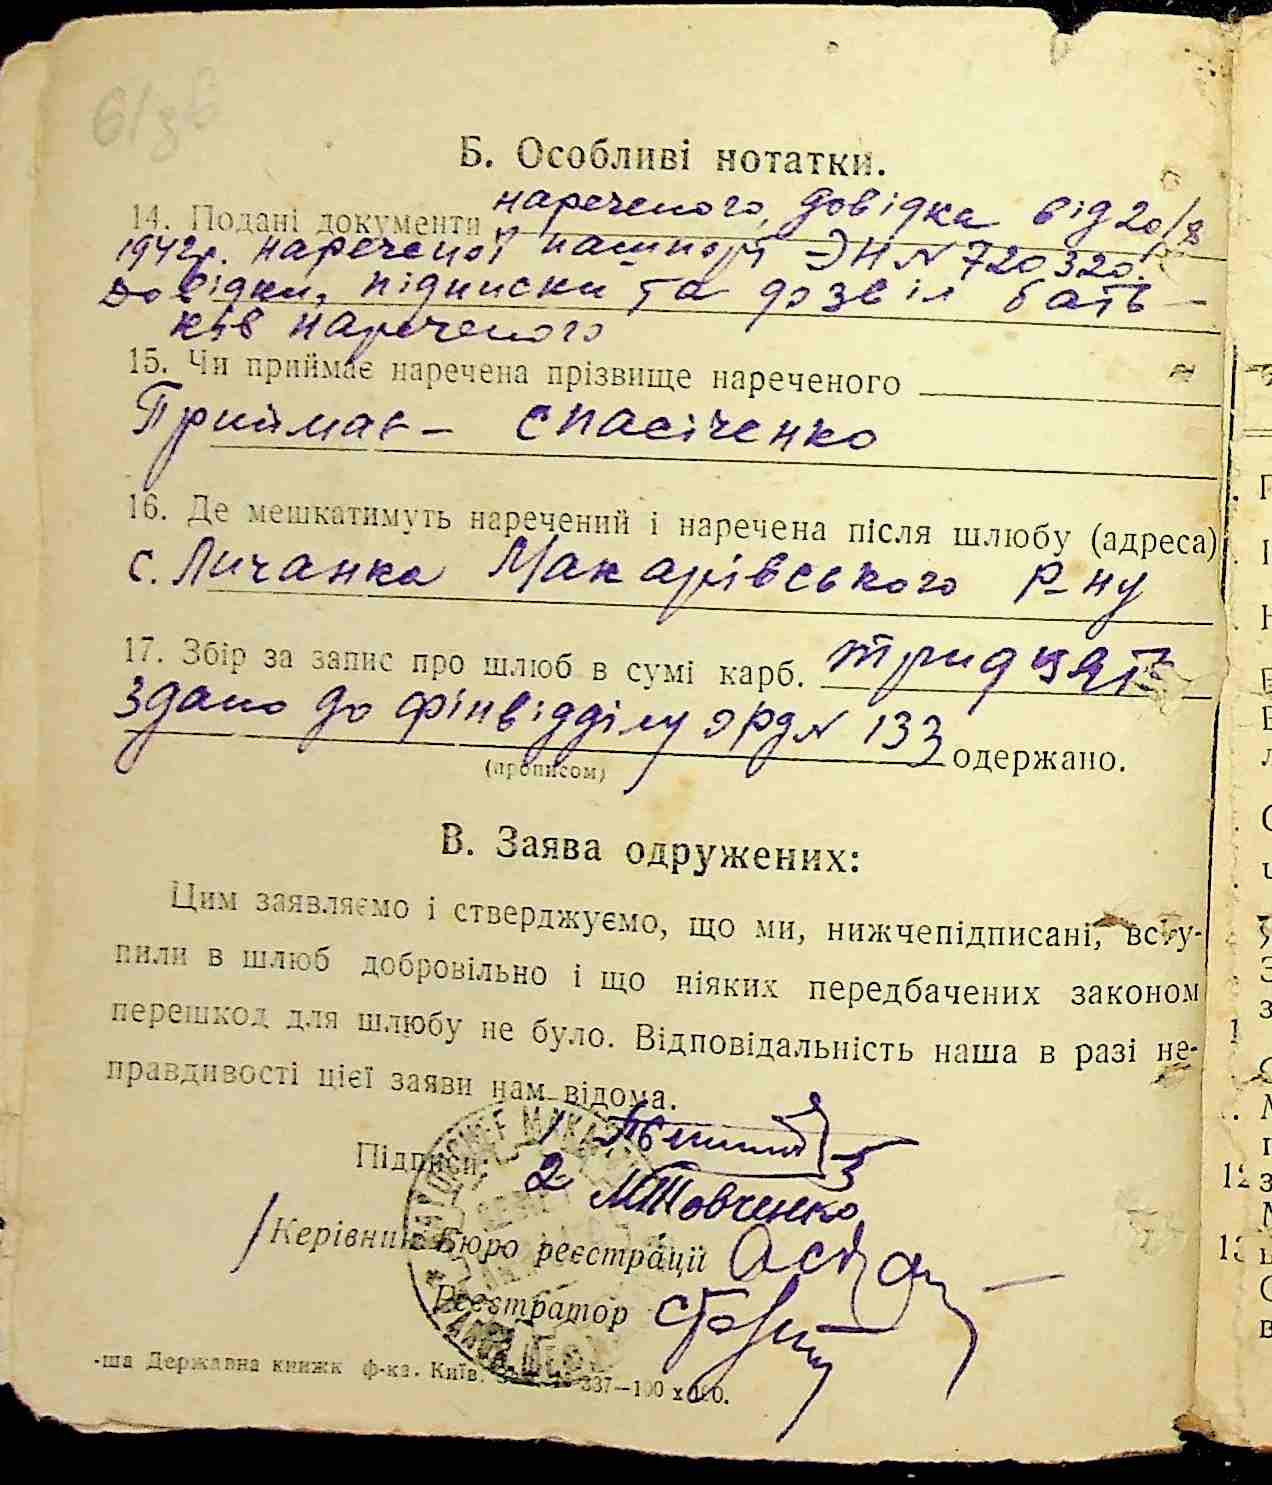 Б. Особливі нотатки.
14. Подані документи нареченого, довідка від 20/8
1942р. нареченої пашпорт ЭН № 720320.
Довідки, підписки та дозвіл бать-
ків нареченого
15. Чи приймає наречена прізвище нареченого
Приймає – Спасіченко
16. Де мешкатимуть наречений і наречена після шлюбу (адреса)
с. Личанка Макарівського р-ну
17. Збір за запис про шлюб в сумі карб. тридцять
здано до фінвідділу ярд № 133 одержано.
(прописом)
В. Заява одружених:
Цим заявляємо і стверджуємо, що ми, нижчепідписані, всту-
пили в шлюб добровільно і що ніяких передбачених законом
перешкод для шлюбу не було. Відповідальність наша в разі не-
правдивості цієї заяви нам відома.
Підписи: 1
2 МШовченко
Керівник Бюро реєстрації
Реєстратор
-ша Державна книжк ф-ка. Київ.